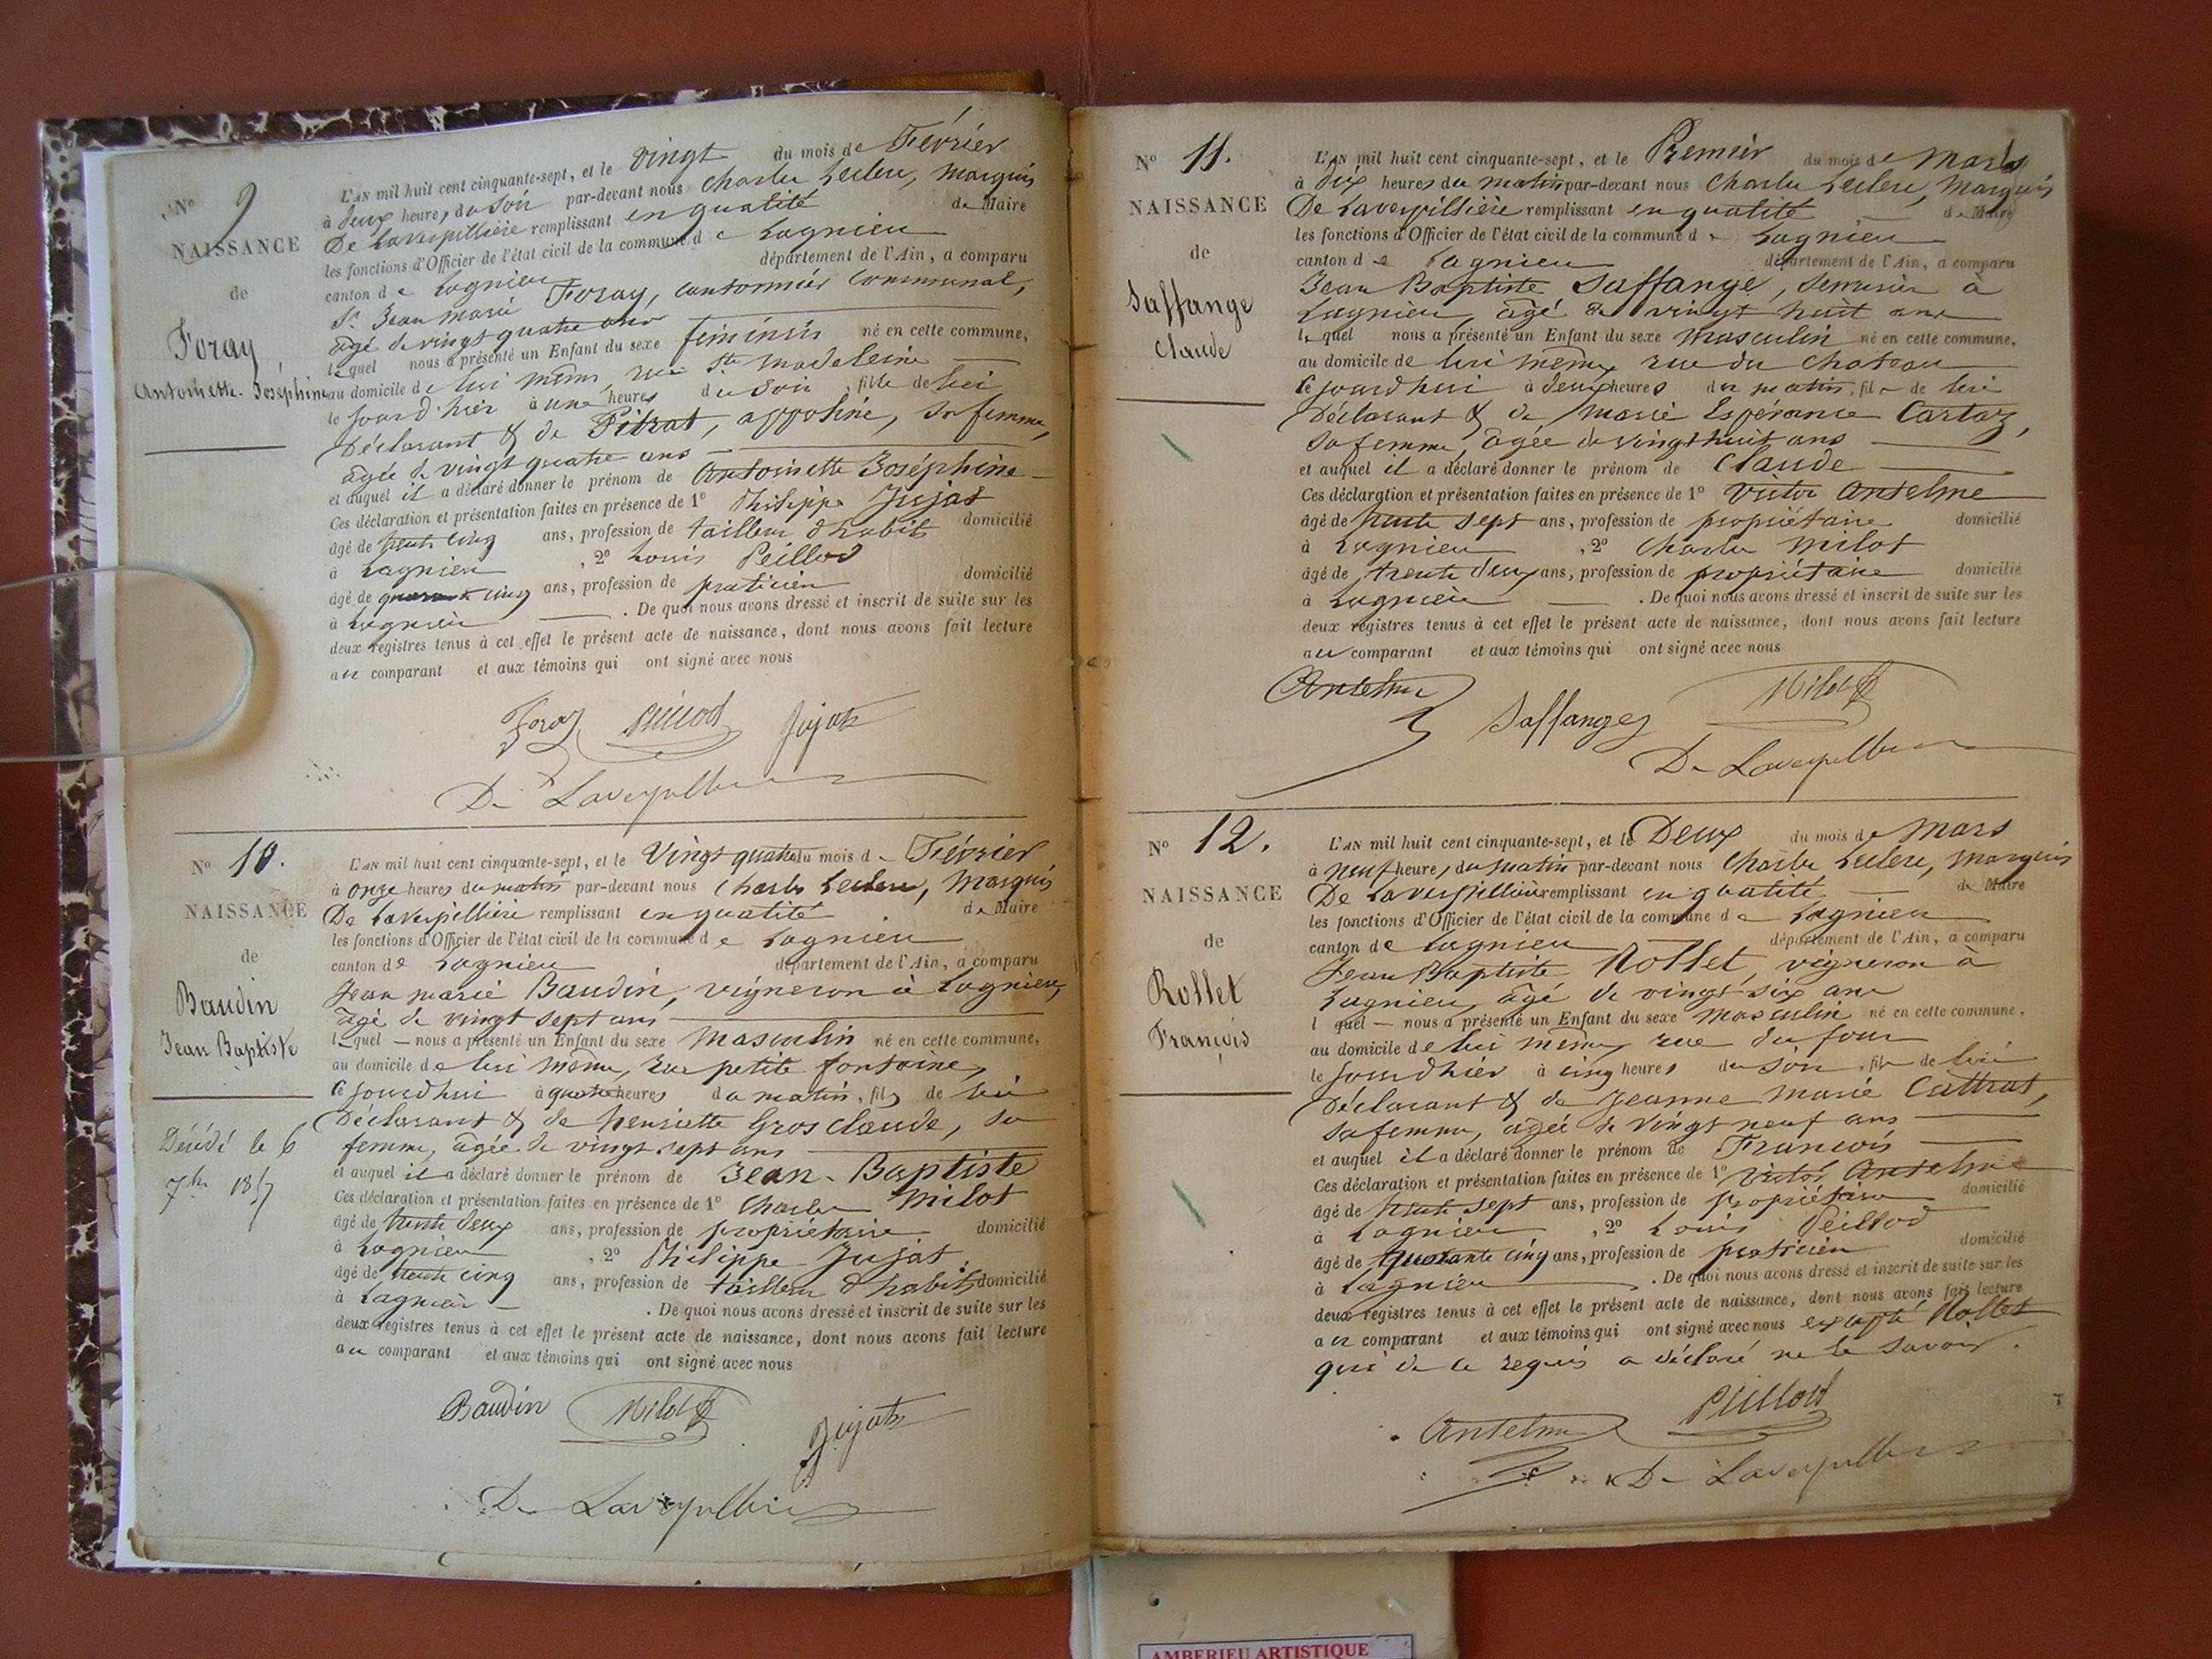 N° 9
NAISSANCE
de
Foray
Antoinette-Joséphine
L'AN mil huit cent cinquante-sept, et le vingt du mois de Février
à deux heures du soir par-devant nous Charles Leclerc, Marquis
De Laverpillière remplissant en qualité de Maire
les fonctions d'Officier de l'état civil de la commune de Lagnieu
canton de Lagnieu département de l'Ain, a comparu
Sr Jean Marie Foray, cantonnier communal,
âgé de vingt quatre ans
lequel nous a présenté un Enfant du sexe féminin né en cette commune,
au domicile de lui même, rue Ste Madeleine
le jourd'hier à une heures du soir, fille de lui
Déclarant & de Pitrat, appoline, sa femme,
âgée de vingt quatre ans
et auquel il a déclaré donner le prénom de Antoinette Joséphine
Ces déclaration et présentation faites en présence de 1° Philippe Jujat
âgé de trente cinq ans, profession de tailleur d'habits domicilié
à Lagnieu, 2° Louis Peillod
âgé de quarante cinq ans, profession de praticien domicilié
à Lagnieu. De quoi nous avons dressé et inscrit de suite sur les
deux registres tenus à cet effet le présent acte de naissance, dont nous avons fait lecture
au comparant et aux témoins qui ont signé avec nous
Foray Peillod Jujat
De Laverpillière
N° 10.
NAISSANCE
de
Baudin
Jean Baptiste
Décédé le 6
7bre 1857
L'AN mil huit cent cinquante-sept, et le Vingt quatre du mois de Février
à onze heures du matin par-devant nous Charles Leclerc, Marquis
De Laverpillière remplissant en qualité de Maire
les fonctions d'Officier de l'état civil de la commune de Lagnieu
canton de Lagnieu département de l'Ain, a comparu
Jean Marie Baudin, vigneron à Lagnieu,
âgé de vingt sept ans
lequel nous a présenté un Enfant du sexe Masculin né en cette commune,
au domicile de lui même, rue petite fontaine,
ce jourd'hui à quatre heures du matin, fils de lui
Déclarant & de henriette Grosclaude, sa
femme, âgée de vingt sept ans
et auquel il a déclaré donner le prénom de Jean-Baptiste
Ces déclaration et présentation faites en présence de 1° Charles Milot
âgé de trente deux ans, profession de propriétaire domicilié
à Lagnieu, 2° Philippe Jujat
âgé de trente cinq ans, profession de tailleur d'habits domicilié
à Lagnieu. De quoi nous avons dressé et inscrit de suite sur les
deux registres tenus à cet effet le présent acte de naissance, dont nous avons fait lecture
au comparant et aux témoins qui ont signé avec nous
Baudin Milot Jujat
De Laverpillière
N° 11.
NAISSANCE
de
Saffange
Claude
L'AN mil huit cent cinquante-sept, et le Premier du mois de Mars
à dix heures du matin par-devant nous Charles Leclerc, Marquis
De Laverpillière remplissant en qualité de Maire
les fonctions d'Officier de l'état civil de la commune de Lagnieu
canton de Lagnieu département de l'Ain, a comparu
Jean Baptiste Saffange, serrurier à
Lagnieu, âgé de vingt huit ans
lequel nous a présenté un Enfant du sexe masculin né en cette commune,
au domicile de lui même rue du chateau
ce jourd'hui à deux heures du matin, fils de lui
Déclarant & de Marie Espérance Cartaz,
sa femme, âgée de vingt huit ans
et auquel il a déclaré donner le prénom de Claude
Ces déclaration et présentation faites en présence de 1° Victor Anselme
âgé de trente sept ans, profession de propriétaire domicilié
à Lagnieu, 2° Charles Milot
âgé de trente deux ans, profession de propriétaire domicilié
à Lagnieu. De quoi nous avons dressé et inscrit de suite sur les
deux registres tenus à cet effet le présent acte de naissance, dont nous avons fait lecture
au comparant et aux témoins qui ont signé avec nous
Anselme Saffange Milot
De Laverpillière
N° 12.
NAISSANCE
de
Rollet
François
L'AN mil huit cent cinquante-sept, et le Deux du mois de Mars
à neuf heures du matin par-devant nous Charles Leclerc, Marquis
De Laverpillière remplissant en qualité de Maire
les fonctions d'Officier de l'état civil de la commune de Lagnieu
canton de Lagnieu département de l'Ain, a comparu
Jean Baptiste Rollet, vigneron à
Lagnieu, âgé de vingt six ans
l quel nous a présenté un Enfant du sexe masculin né en cette commune,
au domicile de lui même, rue du four
le jourd'hier à cinq heures du soir, fils de lui
Déclarant & de Jeanne Marie Cuttrat,
sa femme, âgée de vingt neuf ans
et auquel il a déclaré donner le prénom de François
Ces déclaration et présentation faites en présence de 1° Victor Anselme
âgé de trente sept ans, profession de propriétaire domicilié
à Lagnieu, 2° Louis Peillod
âgé de quarante cinq ans, profession de praticien domicilié
à Lagnieu. De quoi nous avons dressé et inscrit de suite sur les
deux registres tenus à cet effet le présent acte de naissance, dont nous avons fait lecture
au comparant et aux témoins qui ont signé avec nous excepté Rollet
qui de ce requis a déclaré ne le savoir.
Anselme Peillod
De Laverpillière
AMBERIEU ARTISTIQUE